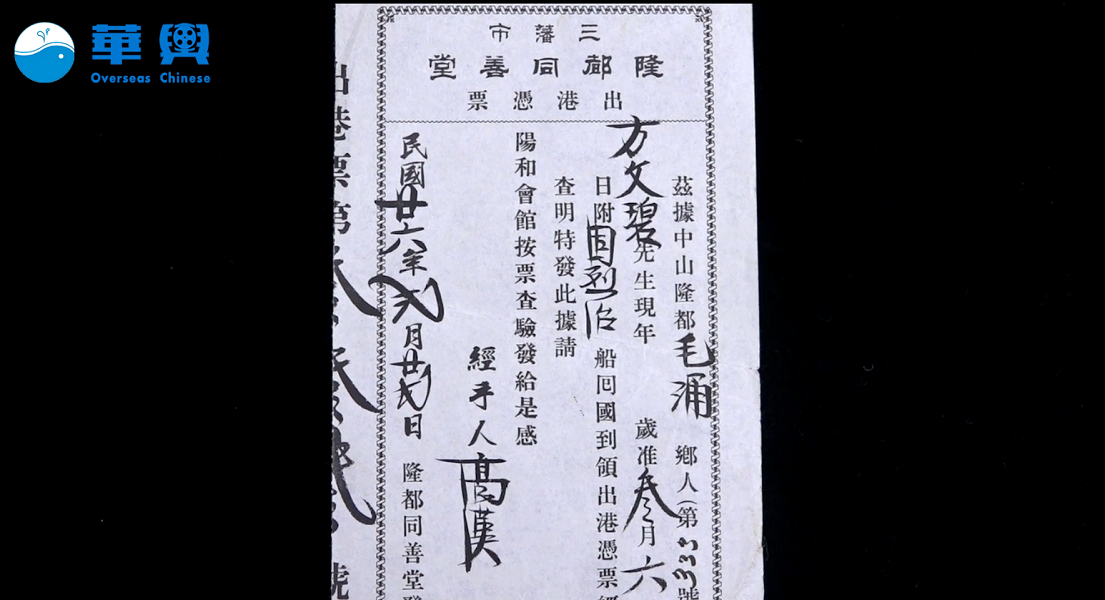 華興
Overseas Chinese
三藩市
隆都同善堂
出港憑票
茲據中山隆都毛涌鄉人(第333號
方文碧先生現年 歲准叁月六
日附 船囘國到領出港憑票經
查明特發此據請
陽和會館按票查驗發給是感
經手人高漢
民國廿六年弍月廿弍日 隆都同善堂發
出港票第 號